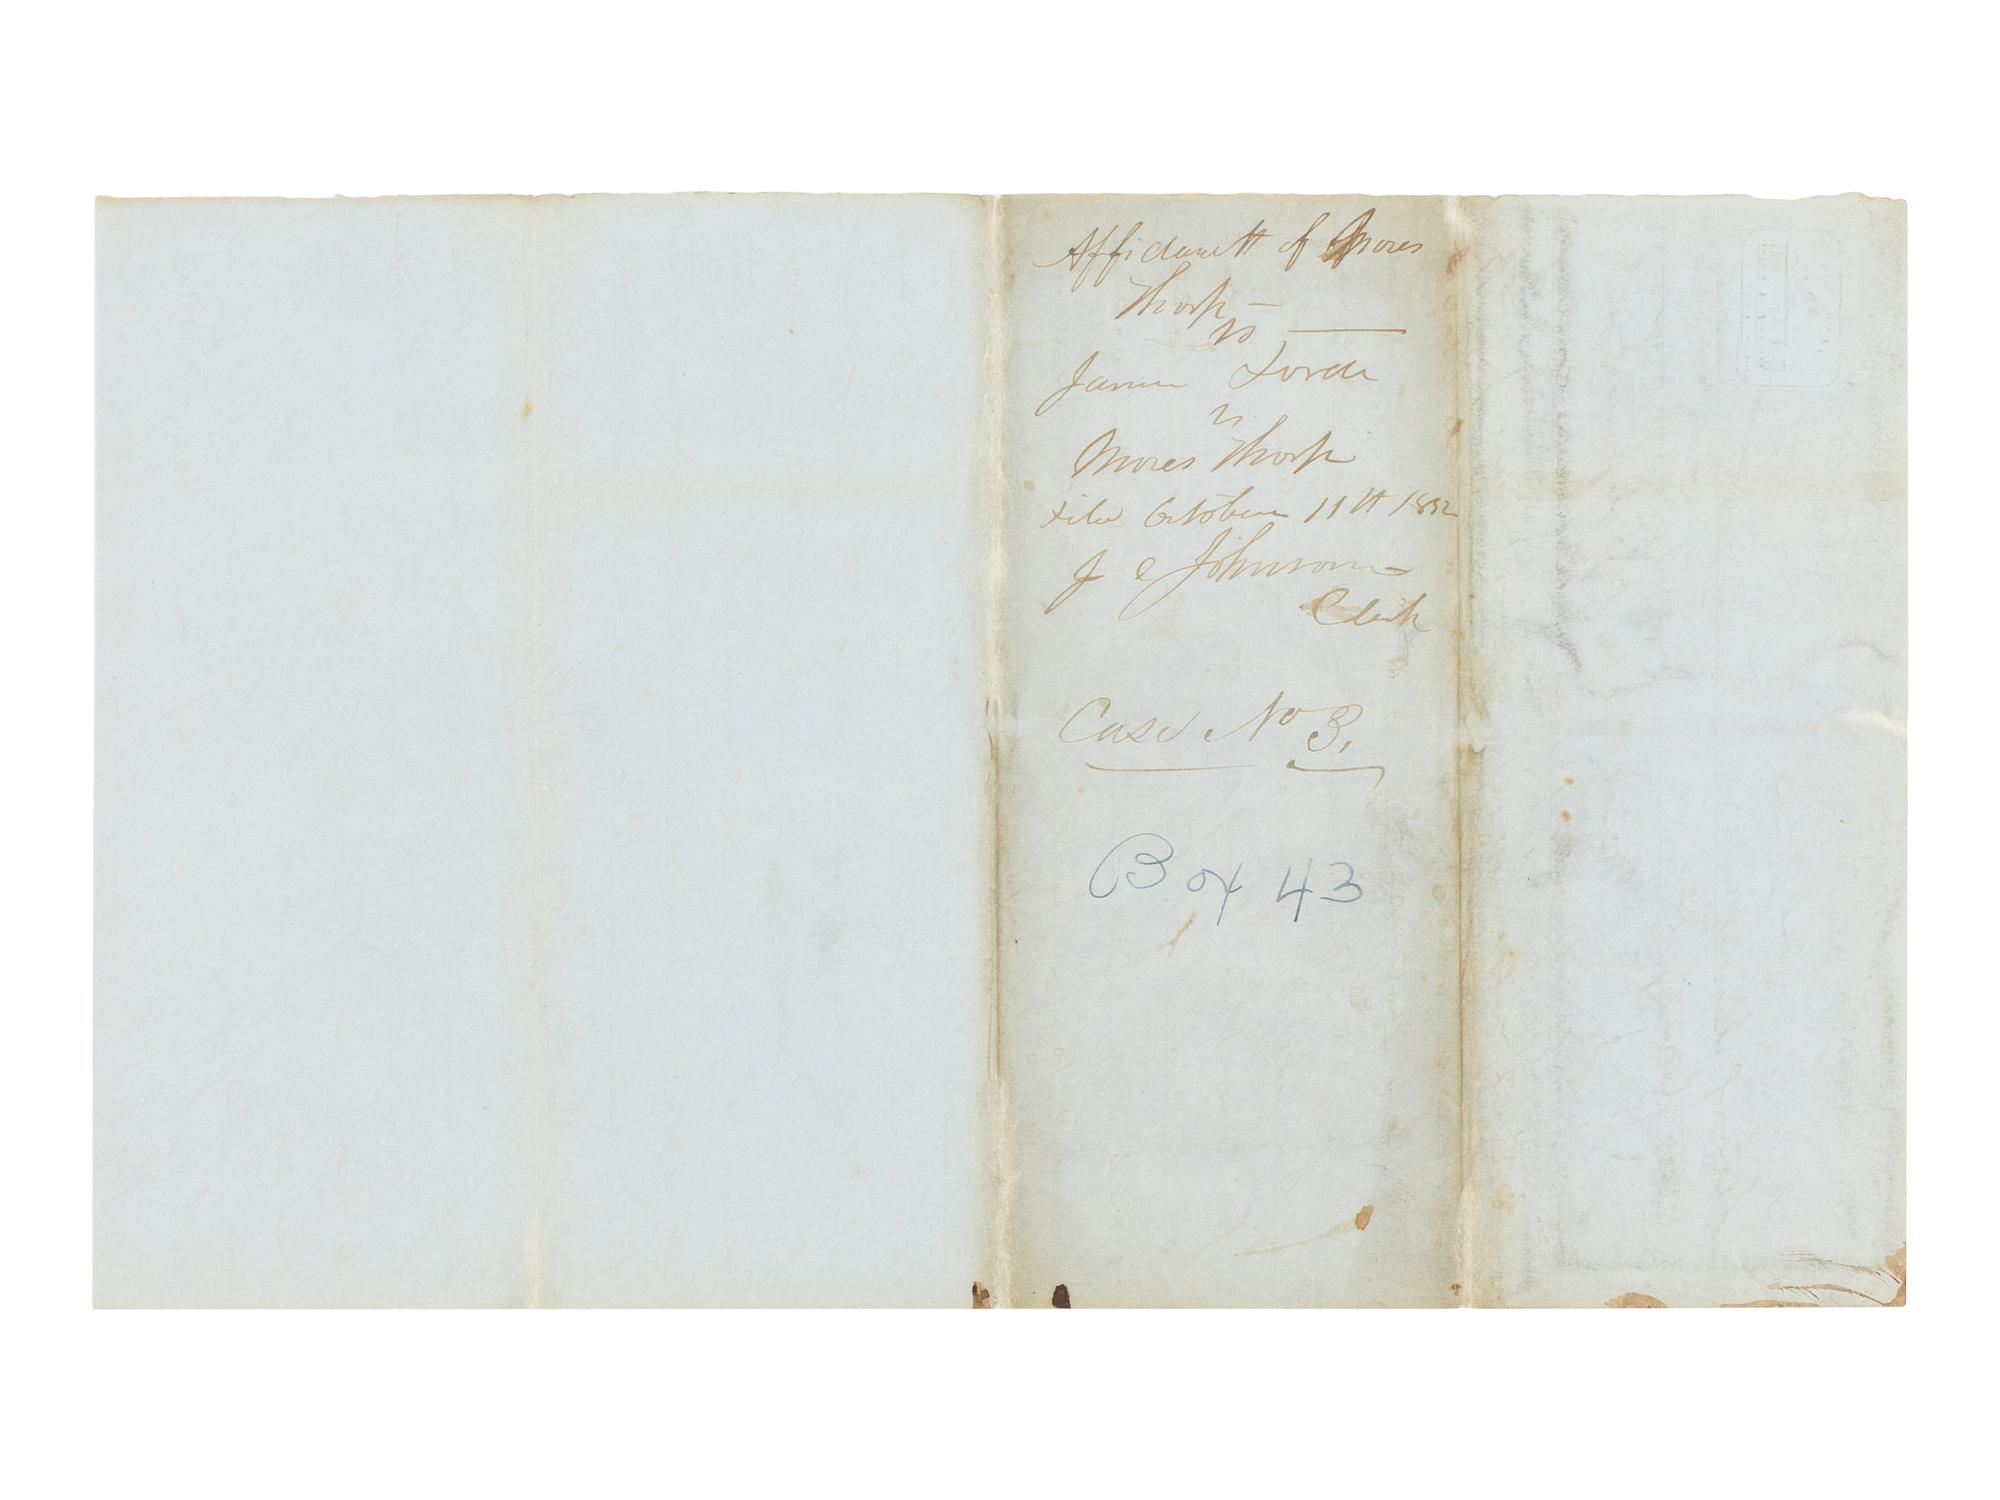 Affidavett of Moses
Thorp —
vs
James Lorde
vs
Moses Thorp
File October 11th 1852
J C Johnson
Clerk
Case No 3.
Box 43